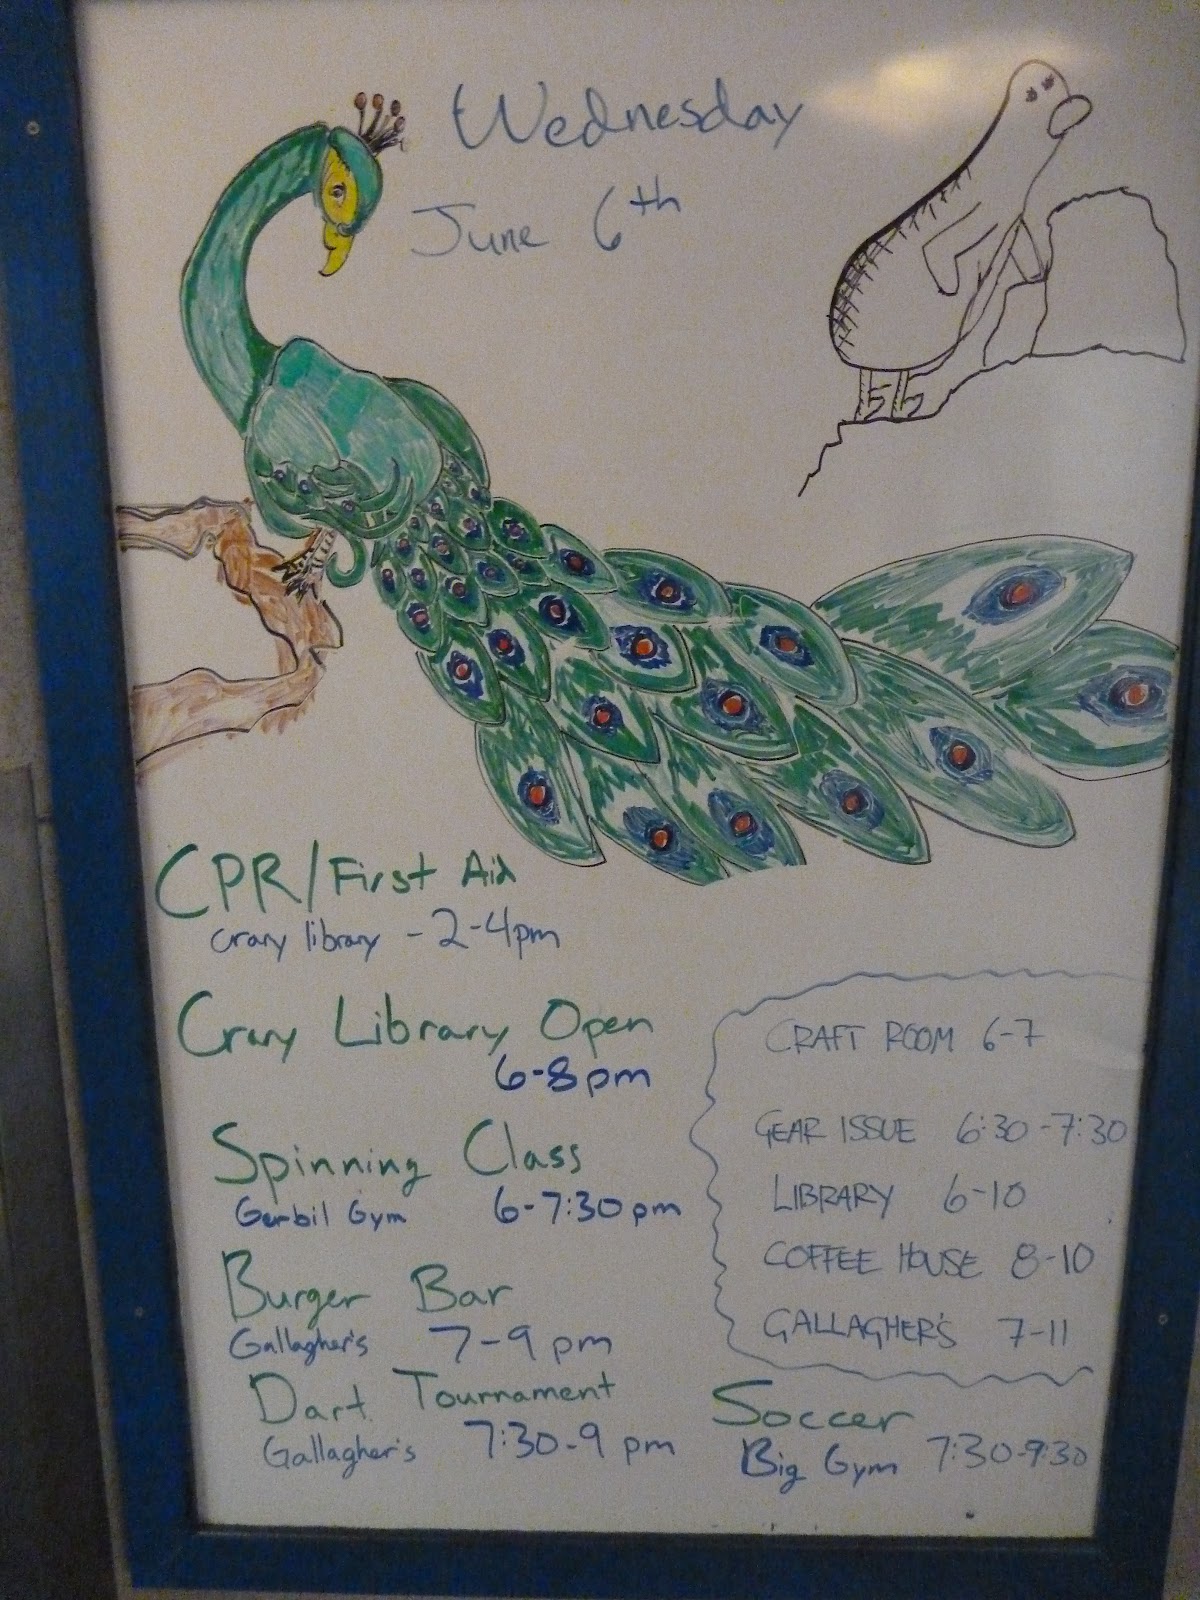 Wednesday
June 6th
CPR/First Aid
crary library - 2-4pm
Crary Library Open
6-8pm
Spinning Class
Gerbil Gym 6-7:30pm
Burger Bar
Gallagher's 7-9 pm
Dart Tournament
Gallagher's 7:30-9 pm
CRAFT ROOM 6-7
GEAR ISSUE 6:30-7:30
LIBRARY 6-10
COFFEE HOUSE 8-10
GALLAGHER'S 7-11
Soccer
Big Gym 7:30-9:30